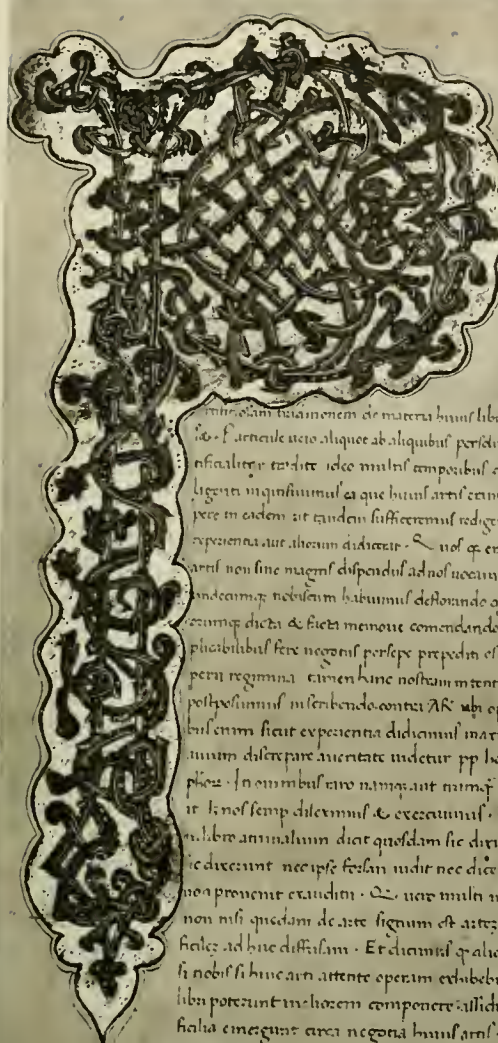 de materia huius lib
Particule uero aliquot ab aliquibus
tificialiter tradite ideo multis temporibus
ligenti inquisiuimus ea que huius artis
pere in eadem ut tandem sufficeremus redige
experientia aut aliorum didicerat .
artis non sine magnis dispendiis ad nos uocaui
undecumq; nobiscum habuimus deflorando q
eorumq; dicta & facta memorie comendando
plicabilibus fere negotiis persepe prepediti es
perii regimina tamen hanc nostram intent
postposuimus in scribendo contra AR ubi op
bus enim sicut experientia didicimus max
auium discrepare a ueritate uidetur pp ho
phor . In omnibus raro namq; aut numq;
it nos semp dileximus & exercuimus .
n libro animalium dicit quosdam sic dix
ic dixerunt nec ipse forsan uidit nec dice
non prouenit ex auditu . Q uero multi m
non nisi quedam de arte signum est
ad huc diffusam . Et dicimus q aliq
si nobis si huic arti attente operam exhibeb
libri poterunt meliorem componere . assidu
ficilia emergunt circa negotia huius artis .